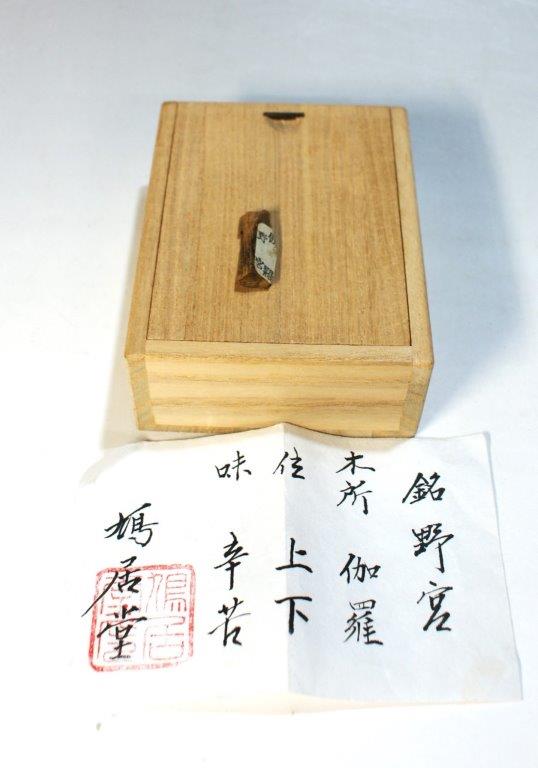 銘 野宮
木所 伽羅
位 上下
味 辛苦
鳩居堂
鳩居堂